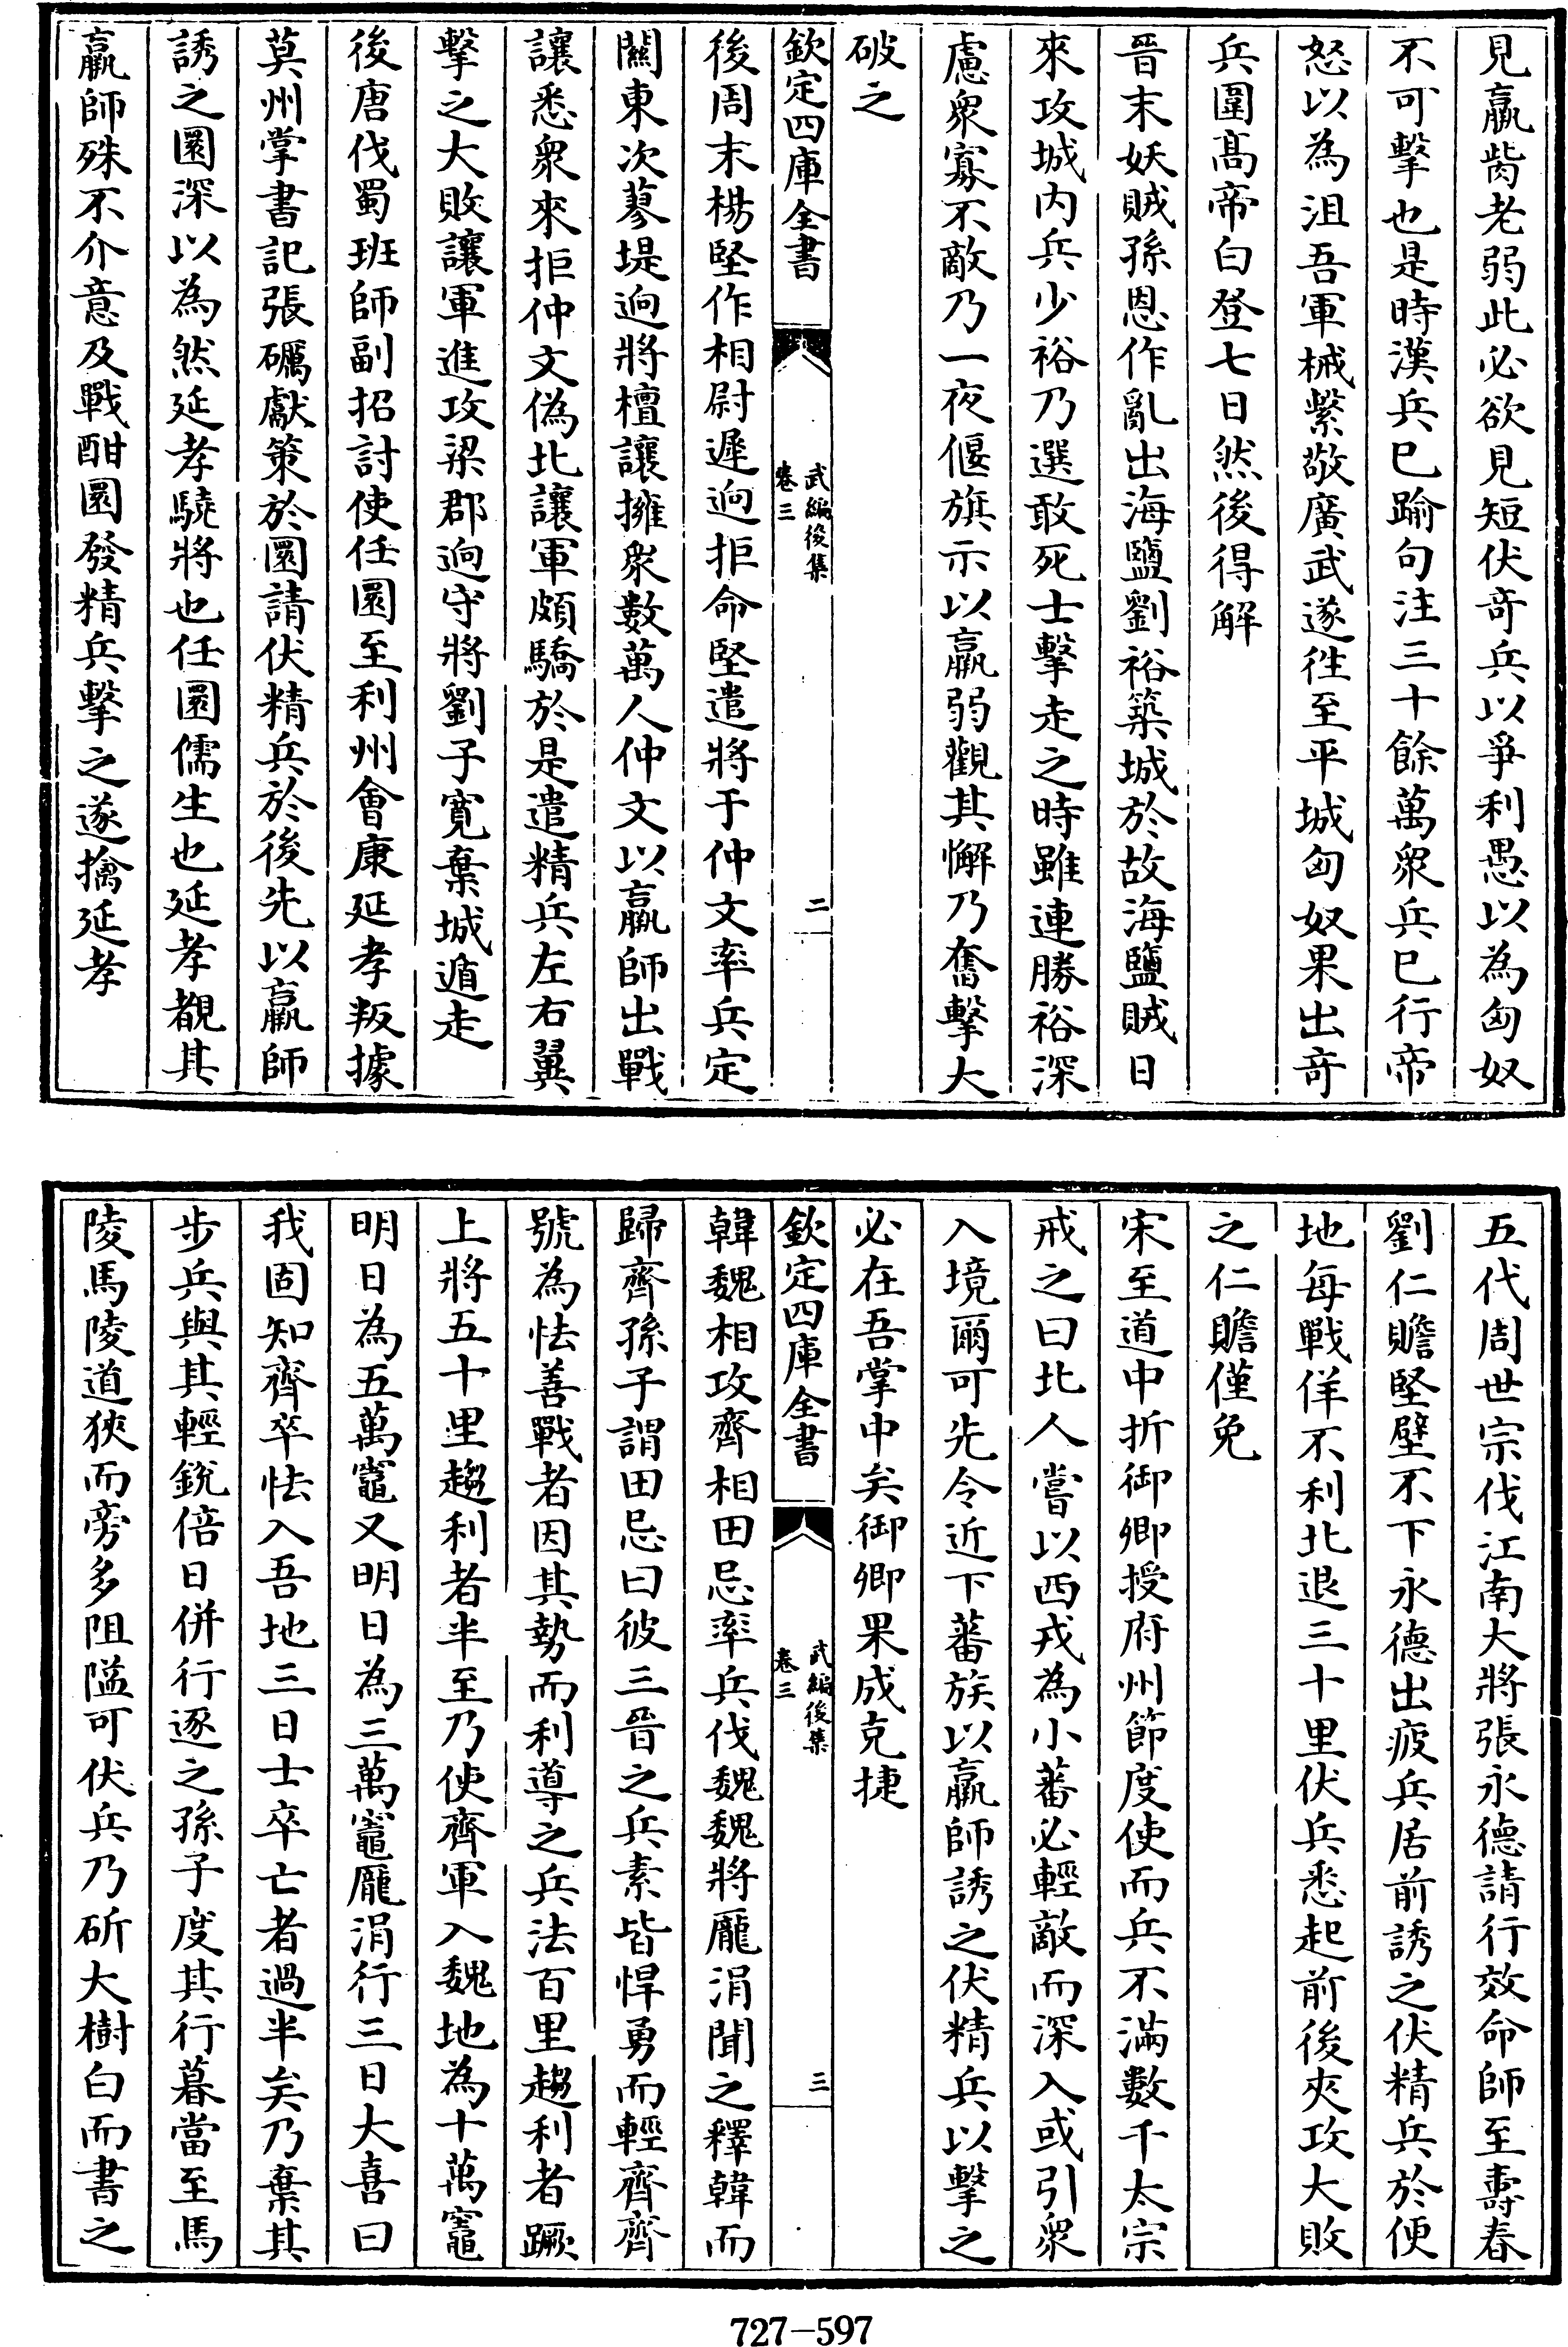 見羸胔老弱此必欲見短伏竒兵以爭利愚以為匈奴
不可擊也是時漢兵已踰句注三十餘萬衆兵已行帝
怒以為沮吾軍械繫敬廣武遂徃至平城匈奴果出竒
兵圍髙帝白登七日然後得解
晉末妖賊孫恩作亂出海鹽劉裕築城於故海鹽賊日
來攻城内兵少裕乃選敢死士擊走之時雖連勝裕深
慮衆寡不敵乃一夜偃旗示以羸弱觀其懈乃奮擊大
破之
欽定四庫全書
武編後集
卷三
二
後周末楊堅作相尉遲逈拒命堅遣將于仲文率兵定
關東次蓼堤逈將檀讓擁衆數萬人仲文以羸師出戰
讓悉衆來拒仲文偽北讓軍頗驕於是遣精兵左右翼
擊之大敗讓軍進攻梁郡逈守將劉子寛棄城遁走
後唐伐蜀班師副招討使任圜至利州會康延孝叛據
莫州掌書記張礪獻策於圜請伏精兵於後先以羸師
誘之圜深以為然延孝驍將也任圜儒生也延孝覩其
羸師殊不介意及戰酣圜發精兵擊之遂擒延孝
五代周世宗伐江南大將張永德請行效命師至壽春
劉仁贍堅壁不下永德出疲兵居前誘之伏精兵於便
地每戰佯不利北退三十里伏兵悉起前後夾攻大敗
之仁贍僅免
宋至道中折御卿授府州節度使而兵不滿數千太宗
戒之曰北人嘗以西戎為小蕃必輕敵而深入或引衆
入境爾可先令近下蕃族以羸師誘之伏精兵以擊之
必在吾掌中矣御卿果成克捷
欽定四庫全書
武編後集
卷三
三
韓魏相攻齊相田忌率兵伐魏魏將龐涓聞之釋韓而
歸齊孫子謂田忌曰彼三晉之兵素皆悍勇而輕齊齊
號為怯善戰者因其勢而利導之兵法百里趨利者蹶
上將五十里趨利者半至乃使齊軍入魏地為十萬竈
明日為五萬竈又明日為三萬竈龐涓行三日大喜曰
我固知齊卒怯入吾地三日士卒亡者過半矣乃棄其
步兵與其輕銳倍日併行逐之孫子度其行暮當至馬
陵馬陵道狹而旁多阻隘可伏兵乃斫大樹白而書之
727-597